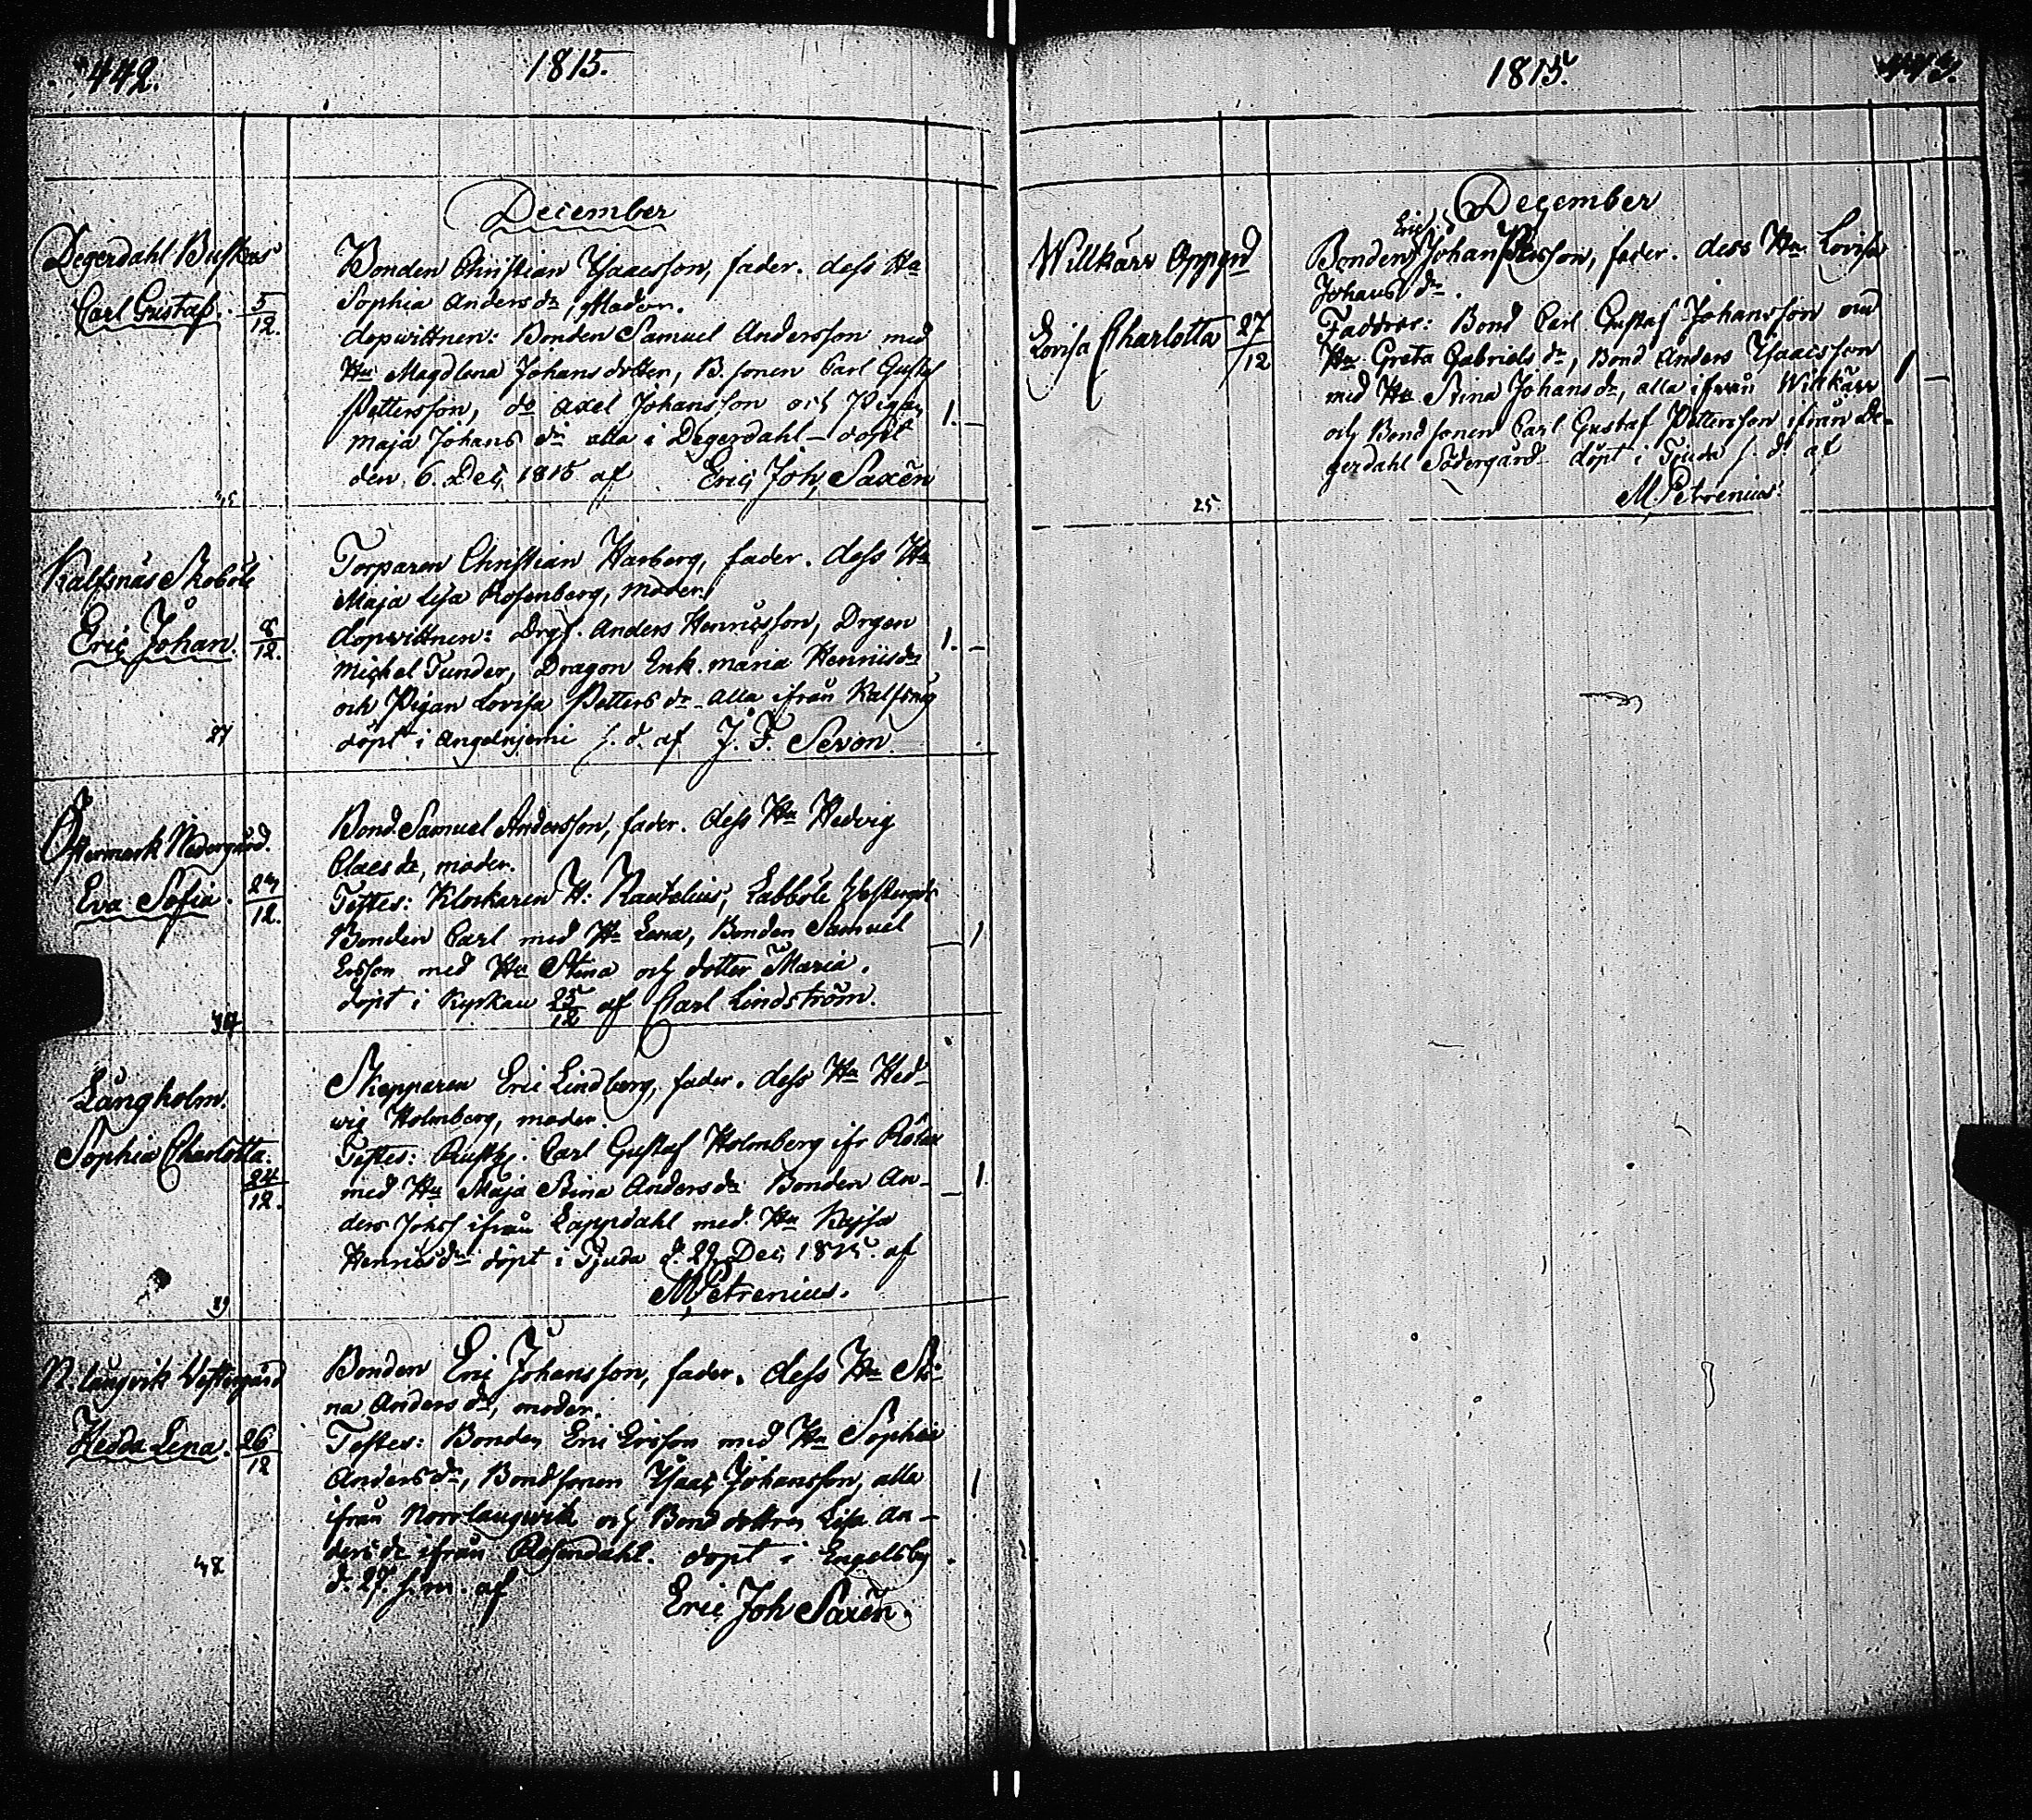 442.
1815.
December
Degerdahl Buskas
Carl Gustaf. 5/12.
Bonden Christian Ysaacsson, fader. dess Hu
Sophia Anders dr, Moder.
dopvittnen: Bonden Samuel Andersson med
Hu Magdlena Johans dotter, B. sonen Carl Gustaf
Pettersson, do Axel Johansson och Pigan
Maja Johans dr alla i Degerdahl – döpt
1. –
den 6. Dec, 1815 af Eric Joh, Saxén
Kalfsnäs Skoböle
Eric Johan. 8/12.
Torparen Christian Harberg, fader. dess Hu
Maja Lisa Rosenberg, moder.
dopvittnen: Drgf. Anders Henricsson, Drgen
Michel Tunder, Dragon Enk. Maria Henricsdr
och Pigan Lovisa Petters dr – alla ifrån Kalfsnäs
döpt i Angelnjemi s. d. af J. F. Sevon
1. –
27
Östermark Nedergård.
Eva Sofia. 23/12.
Bond. Samuel Andersson, fader. dess Hu Hedvig
Claes dr, moder.
Testes: Klockaren H: Rautelius, Labböle Westergrd
Bonden Carl med Hu Lena, Bonden Samuel
Ersson med Hu Stina och dotter Maria.
döpt i Kyrkan 25/12 af Carl Lindström.
– 1
Långholm.
Sophia Charlotta.
24/12.
Skepparen Eric Lindberg, fader. dess Hu Hed-
wig Holmberg, moder.
Testes: Rusth. Carl Gustaf Holmberg ifr Rölax
med Hu Maja Stina Anders dr Bonden An-
ders Johss ifrån Lappdahl med Hu Kajsa
Henricsdr döpt i Tjuda d. 29 Dec, 1815. af
M Petrenius.
– 1.
39
N. långvik Westergård
Hedda Lena. 26/12
Bonden Eric Johansson, fader. dess Hu Sti-
na Anders dr, moder.
Testes: Bonden Eric Ersson med Hu Sophia
Anders dr, Bondsonen Ysaac Johansson, alla
ifrån Norrlångwik och Bonddottren Lisa An-
ders dr ifrån Rosendahl. döpt i Engelsby
d. 27. s. m. af
Eric Joh Saxén.
1
48
1815.
443.
December
Willkärr Oppgd
Lovisa Charlotta 27/12
Eric
Bonden Johan Persson, fader. dess Hu Lovisa
Johans dr.
Faddrar: Bond Carl Gustaf Johansson med
Hu Greta Gabriels dr, Bond Anders Ysaacsson
med Hu Stina Johans dr, alla ifrån Willkärr
och Bondsonen Carl Gustaf Pettersson ifrån De-
gerdahl Södergård döpt i Tjuda s. d. af
M. Petrenius.
1 –
25.